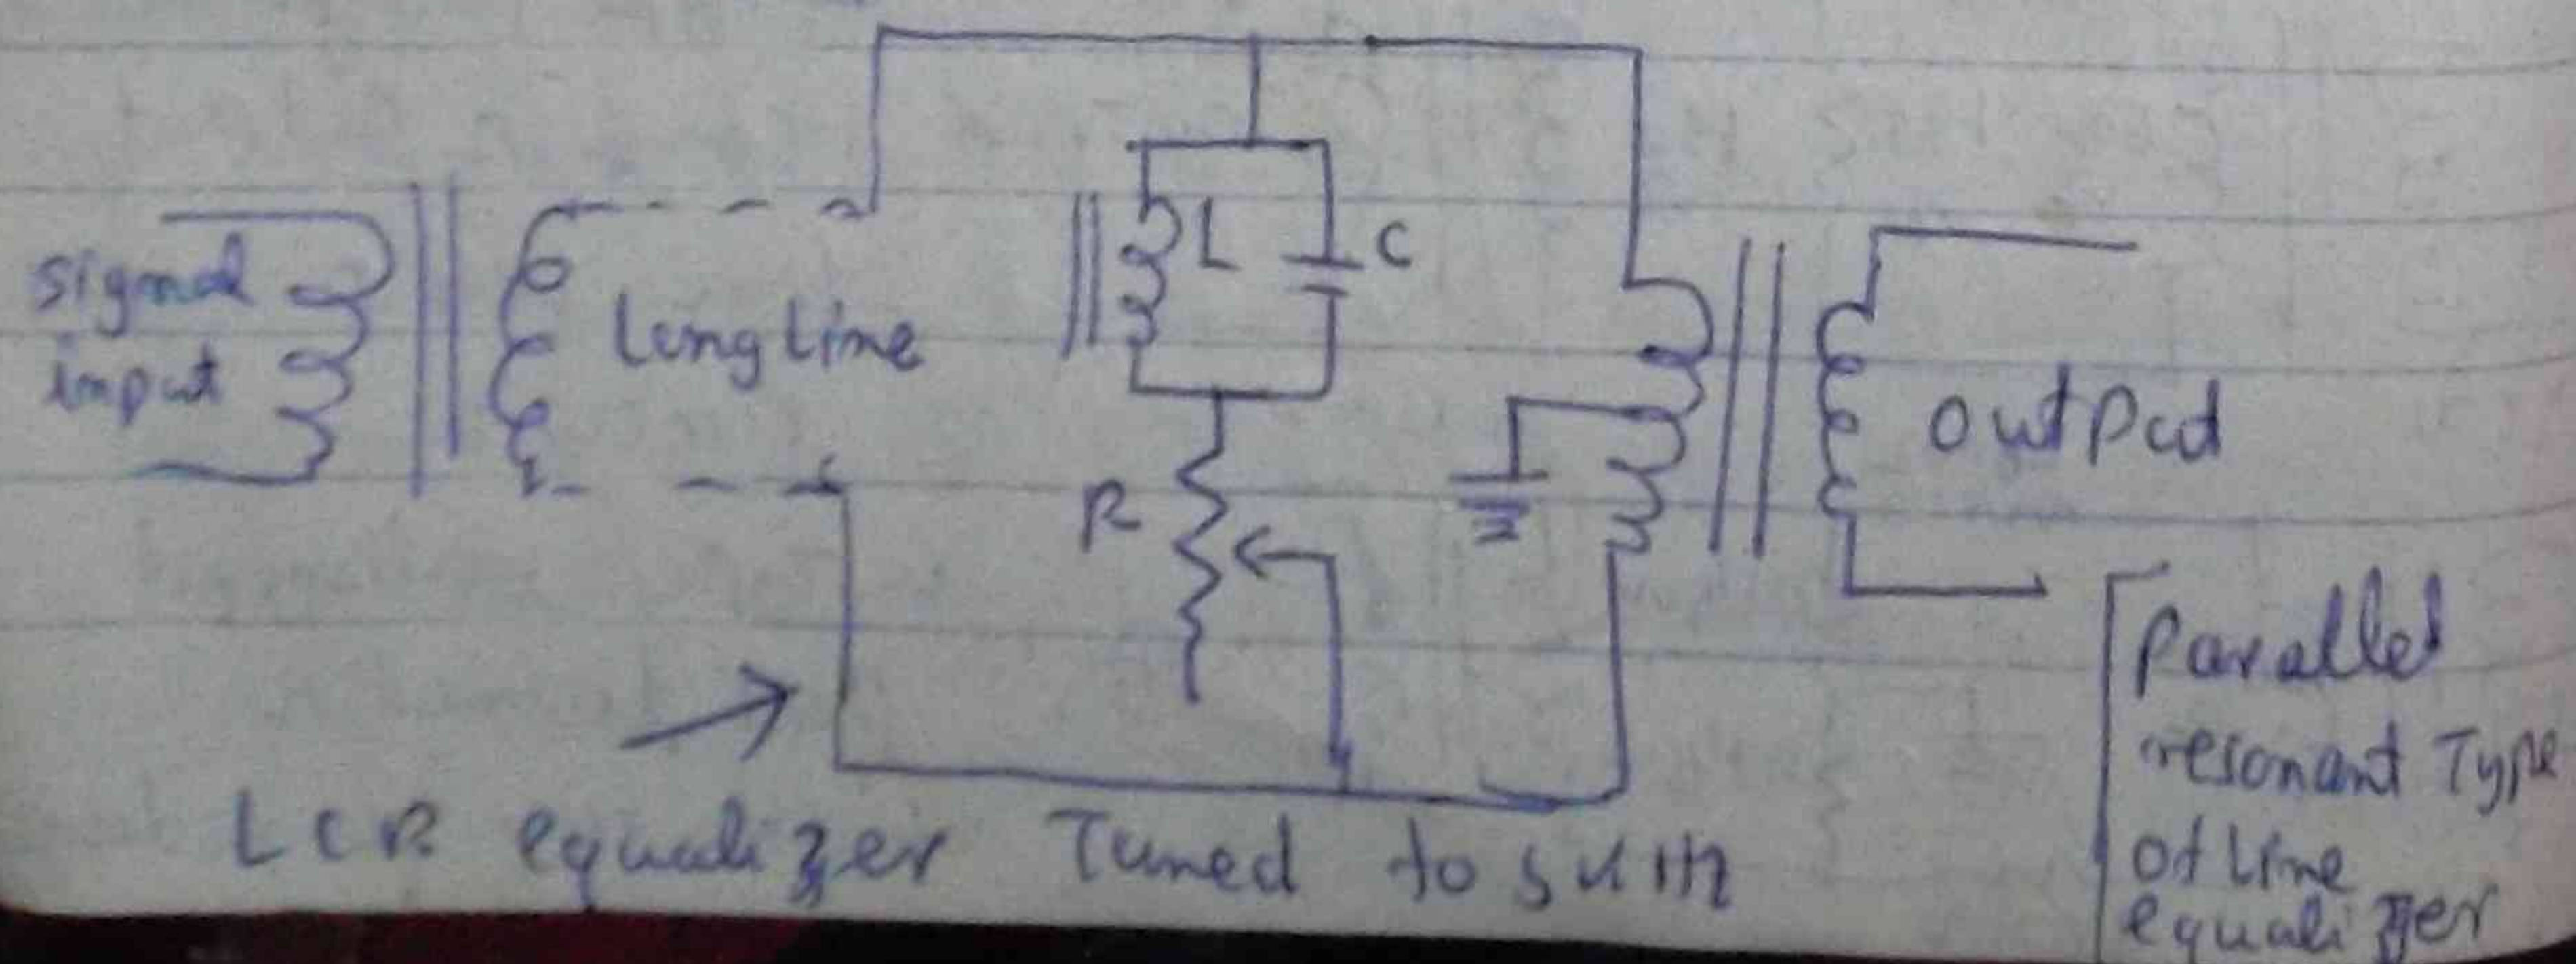 signal
input
Long Line
L
C
R
output
LCR equalizer Tuned to 5 KHz
Parallel
resonant Type
of Line
equalizer